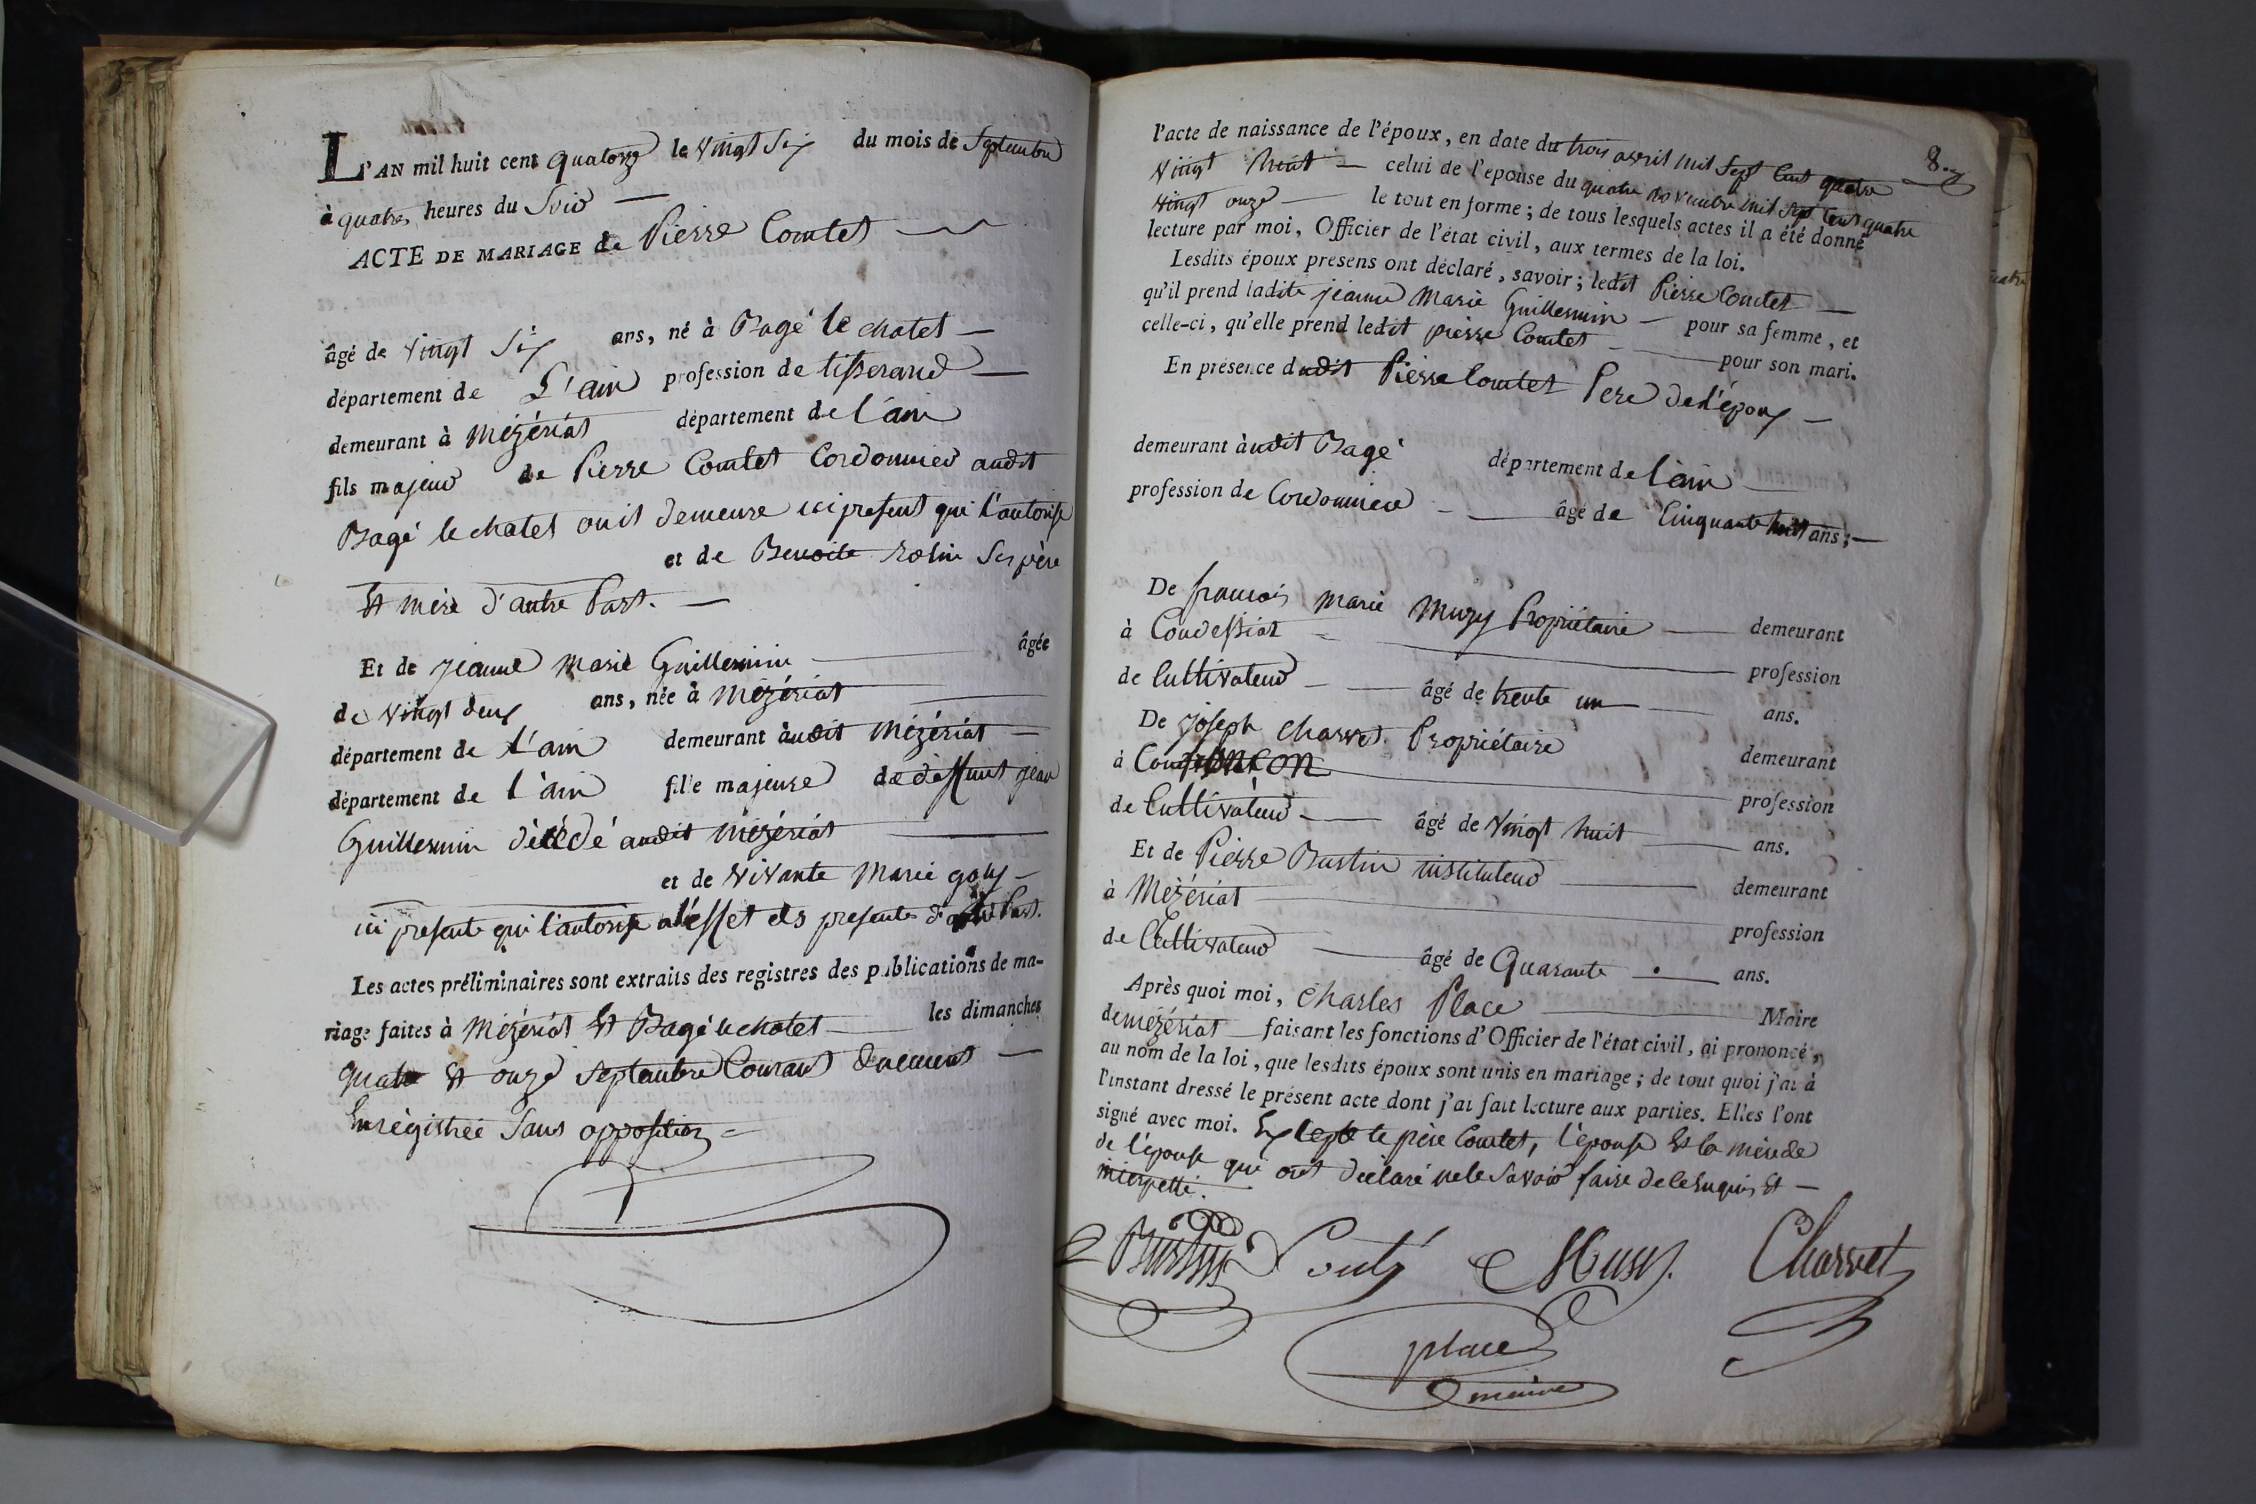 L'AN mil huit cent quatorze le vingt Six du mois de Septembre
à quatre heures du Soir
ACTE DE MARIAGE de Pierre Comtet
âgé de vingt Six ans, né à Bagé le chatel
département de L'ain profession de tisserand
demeurant à Mézériat département de l'ain
fils majeur de Pierre Comtet Cordonnier audit
Bagé le chatel ou il demeure ici present qui l'autorise
et de Benoite rolin Ses père
Et mère d'autre Part.
Et de jeanne Marie Guillermin âgée
de vingt deux ans, née à Mézériat
département de l'ain demeurant audit Mézériat
département de l'ain fille majeure de deffunt jean
Guillermin décédé audit Mézériat
et de vivante Marie goly
ici presente qui l'autorise a l'effet des presentes d'autre Part.
Les actes préliminaires sont extraits des registres des publications de ma-
riage faites à Mézériat Et Bagé le chatel les dimanches
quatre Et onze Septembre Courant duement
Enrégistrée Sans opposition
8.
l'acte de naissance de l'époux, en date du trois avril mil Sept Cent quatre
vingt huit celui de l'épouse du quatre novembre mil Sept Cent quatre
vingt onze le tout en forme; de tous lesquels actes il a été donné
lecture par moi, Officier de l'état civil, aux termes de la loi.
Lesdits époux présens ont déclaré, savoir; ledit Pierre Comtet
qu'il prend ladite jeanne Marie Guillermin pour sa femme, et
celle-ci, qu'elle prend ledit pierre Comtet pour son mari.
En présence dudit Pierre Comtet Pere de l'époux
demeurant audit Bagé département de l'ain
profession de Cordonnier âgé de Cinquante huit ans;
De francois marie Muzy Propriétaire demeurant
à Condessiat profession
de Cultivateur âgé de trente un ans.
De joseph Charvet Propriétaire demeurant
à profession
de Cultivateur âgé de vingt huit ans.
Et de Pierre Bustin instituteur demeurant
à Mézériat profession
de Cultivateur âgé de Quarante ans.
Après quoi moi, Charles Place Maire
de mézériat faisant les fonctions d'Officier de l'état civil, ai prononcé,
au nom de la loi, que lesdits époux sont unis en mariage; de tout quoi j'ai à
l'instant dressé le présent acte dont j'ai fait lecture aux parties. Elles l'ont
signé avec moi. Excepté le père Comtet, l'épouse Et la mère de
de l'épouse qui ont déclaré ne le Savoir faire de ce Enquis Et
interpellé.
Bustin Muzy. Charvet
place
maire